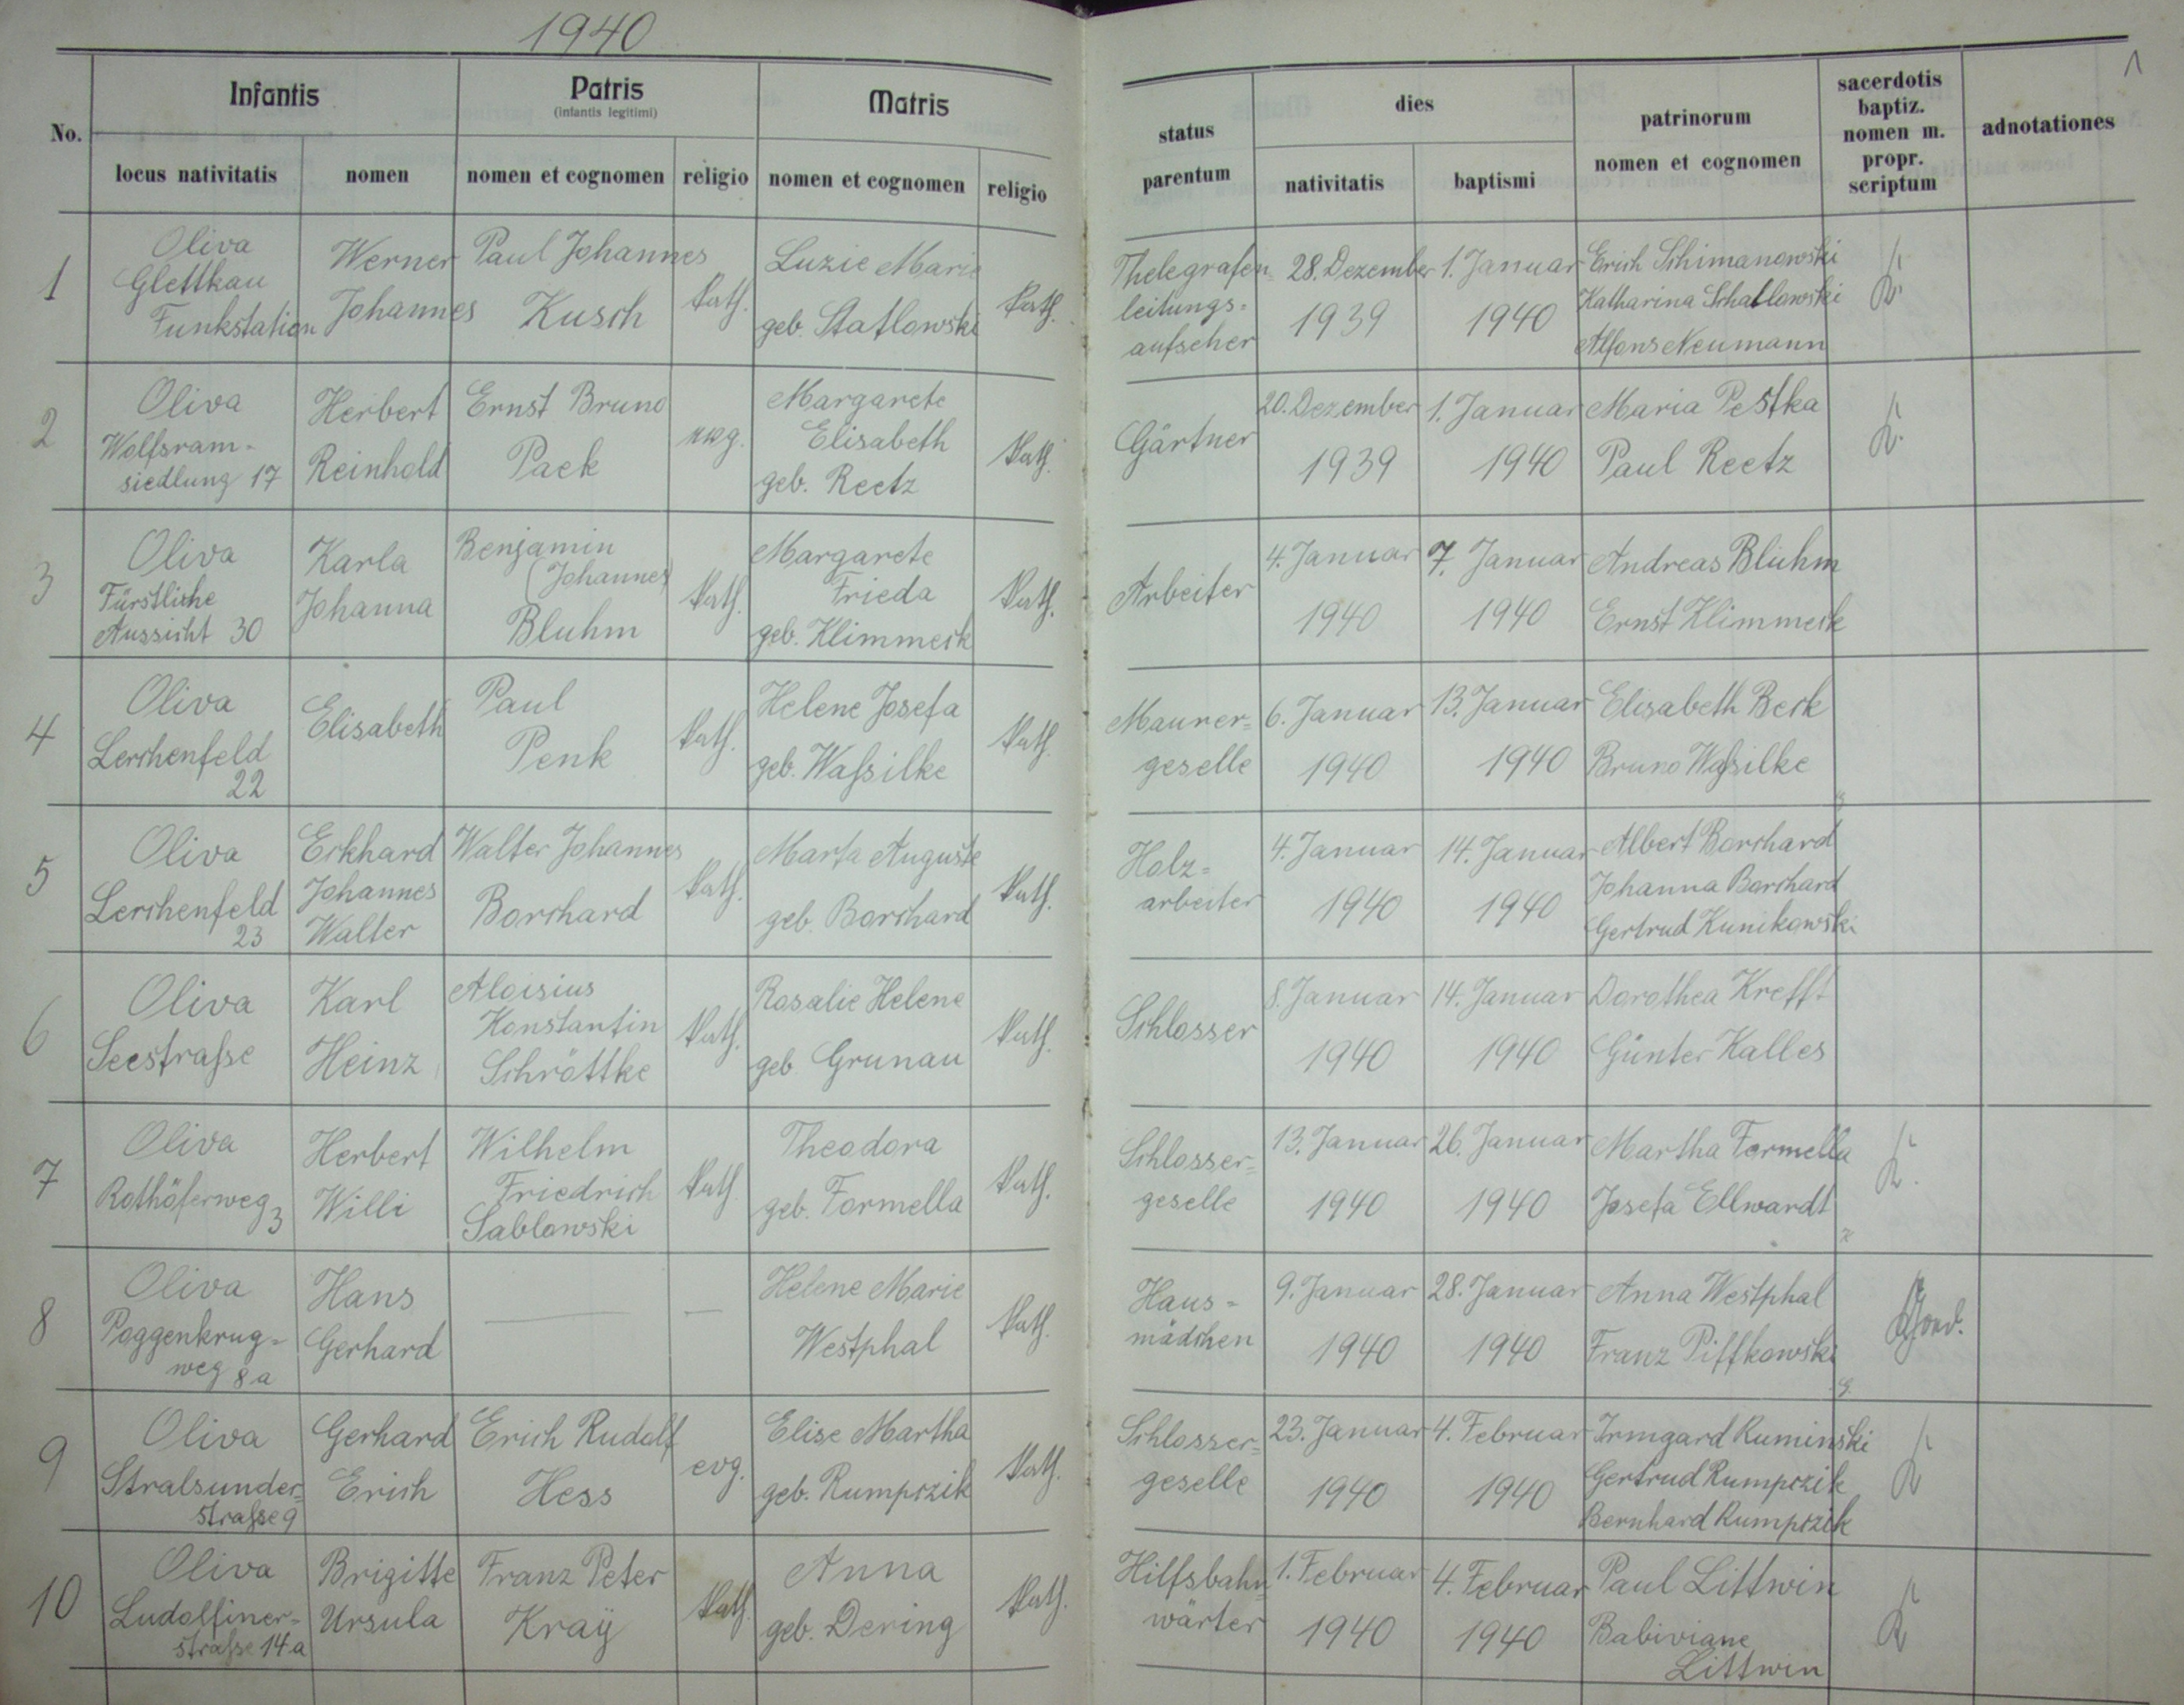 1940
1
No.
Infantis
Patris
(infantis legitimi)
Matris
status
parentum
dies
patrinorum
nomen et cognomen
sacerdotis
baptiz.
nomen m.
propr.
scriptum
adnotationes
locus nativitatis
nomen
nomen et cognomen
religio
nomen et cognomen
religio
nativitatis
baptismi
1
Oliva
Glettkau
Funkstation
Werner
Johannes
Paul Johannes
Kusch
kath.
Luzie Marie
geb. Statlowski
kath.
Thelegrafen-
leitungs=
aufseher
28. Dezember
1939
1. Januar
1940
Erich Schimanowski
Katharina Schatlowski
Alfons Neumann
2
Oliva
Wolfsram-
siedlung 17
Herbert
Reinhold
Ernst Bruno
Pack
evg.
Margarete
Elisabeth
geb. Reetz
kath.
Gärtner
20. Dezember
1939
1. Januar
1940
Maria Pestka
Paul Reetz
3
Oliva
Fürstliche
Aussicht 30
Karla
Johanna
Benjamin
(Johannes)
Bluhm
kath.
Margarete
Frieda
geb. Klimmeck
kath.
Arbeiter
4. Januar
1940
7. Januar
1940
Andreas Bluhm
Ernst Klimmeck
4
Oliva
Lerchenfeld
22
Elisabeth
Paul
Penk
kath.
Helene Josefa
geb. Waßilke
kath.
Maurer=
geselle
6. Januar
1940
13. Januar
1940
Elisabeth Beck
Bruno Waßilke
5
Oliva
Lerchenfeld
23
Eckhard
Johannes
Walter
Walter Johannes
Borchard
kath.
Marta Auguste
geb. Borchard
kath.
Holz=
arbeiter
4. Januar
1940
14. Januar
1940
Albert Borchard
Johanna Borchard
Gertrud Kunikowski
6
Oliva
Seestraße
Karl
Heinz
Aloisius
Konstantin
Schröttke
kath.
Rosalie Helene
geb. Grunau
kath.
Schlosser
8. Januar
1940
14. Januar
1940
Dorothea Krefft
Günter Kalles
7
Oliva
Rothöferweg 3
Herbert
Willi
Wilhelm
Friedrich
Sablowski
kath.
Theodora
geb. Formella
kath.
Schlosser=
geselle
13. Januar
1940
26. Januar
1940
Martha Formella
Josefa Ellwardt
8
Oliva
Poggenkrug=
weg 8a
Hans
Gerhard
—
—
Helene Marie
Westphal
kath.
Haus=
mädchen
9. Januar
1940
28. Januar
1940
Anna Westphal
Franz Piffkowski
9
Oliva
Stralsunder=
straße 9
Gerhard
Erich
Erich Rudolf
Hess
evg.
Elise Martha
geb. Rumpczik
kath.
Schlosser=
geselle
23. Januar
1940
4. Februar
1940
Irmgard Kuminski
Gertrud Rumpczik
Bernhard Rumpczik
10
Oliva
Ludolfiner=
straße 14a
Brigitte
Ursula
Franz Peter
Kraÿ
kath.
Anna
geb. Dering
kath.
Hilfsbahn=
wärter
1. Februar
1940
4. Februar
1940
Paul Littwin
Babiviane
Littwin